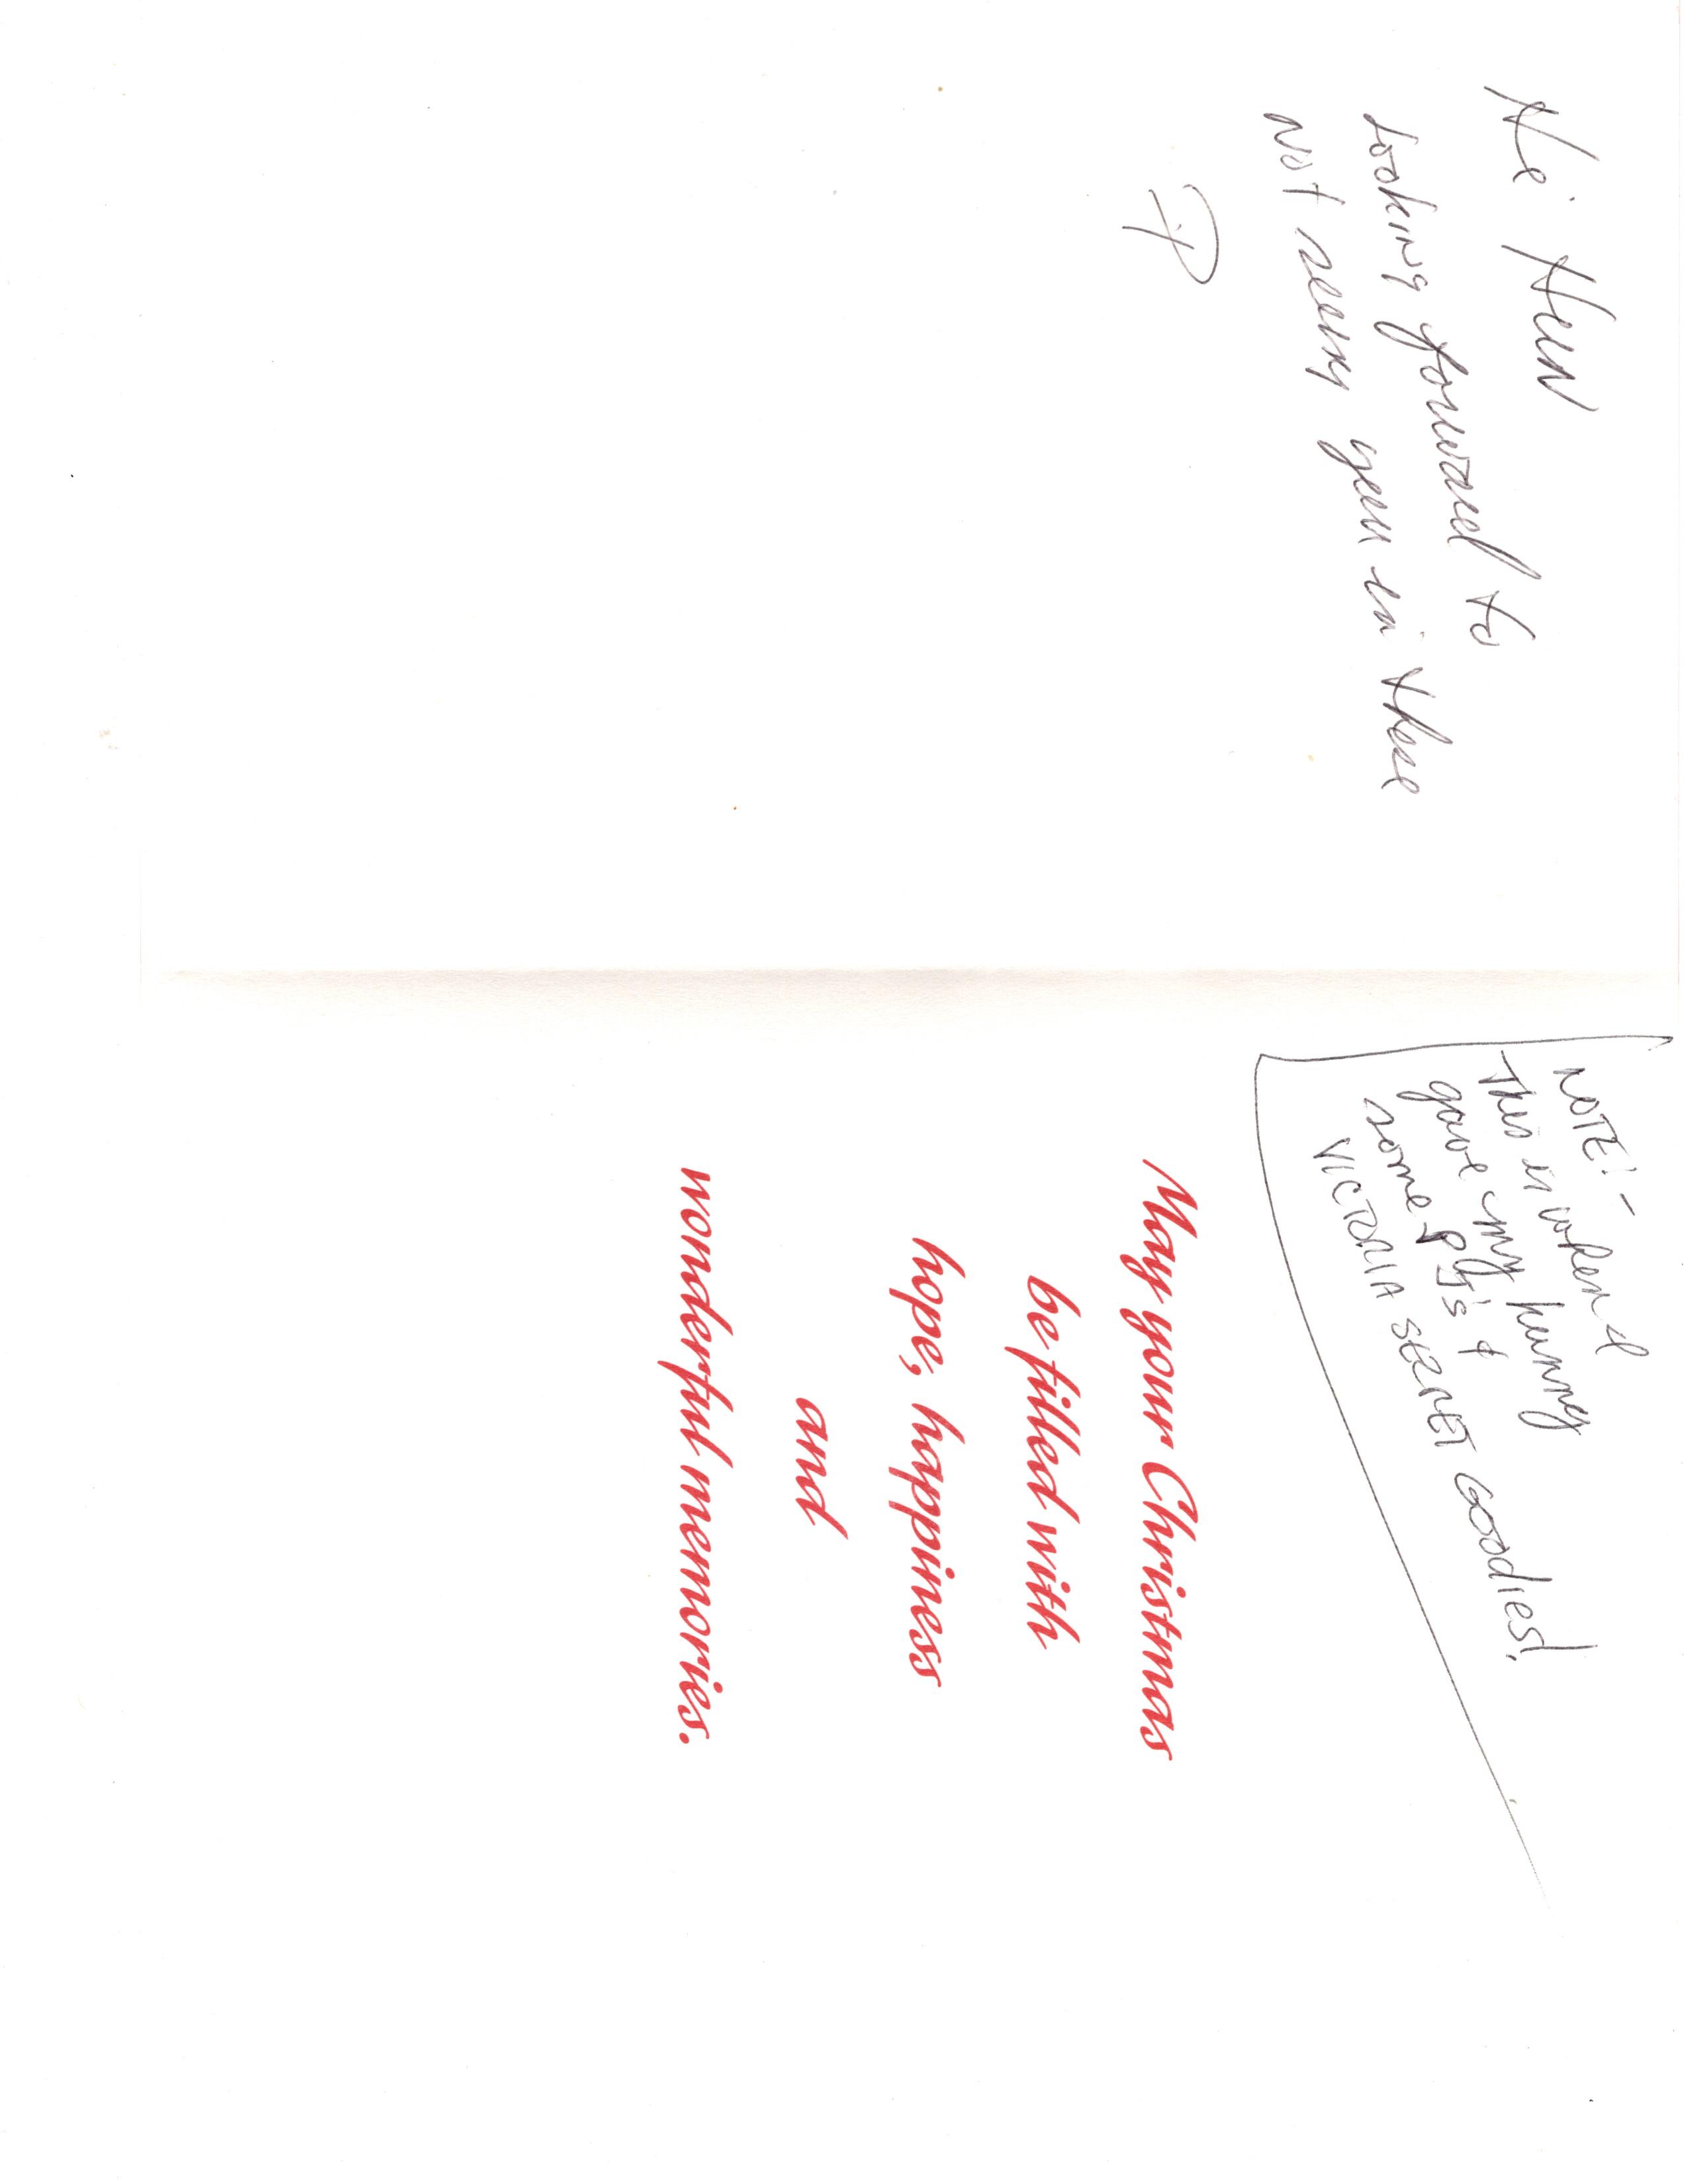 Hi Hun
Looking forward to
not seeing you in these
P
NOTE! -
This is when I
gave my hunny
some PJ's &
VICTORIA SECRET GOODIES!
May your Christmas
be filled with
hope, happiness
and
wonderful memories.